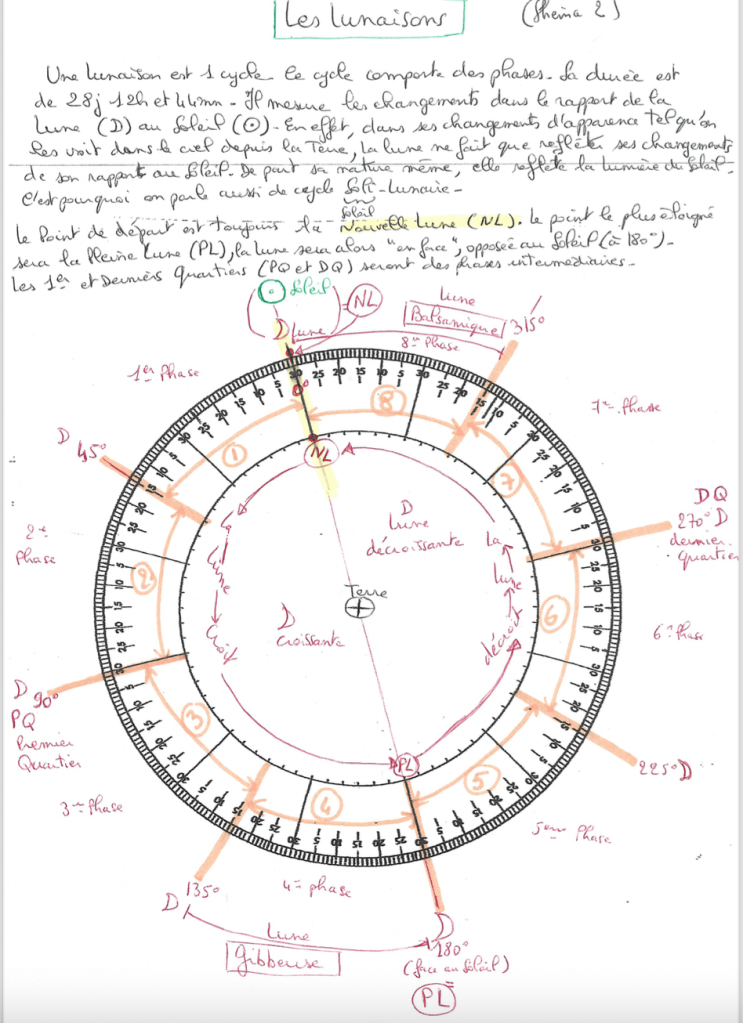 Les Lunaisons
(Shéma 2)
Une Lunaison est 1 cycle. Ce cycle comporte des phases. La durée est
de 28j 12h et 44mn. Il mesure les changements dans le rapport de la
Lune (D) au Soleil (⊙). En effet, dans ses changements d'apparence tel qu'on
les voit dans le ciel depuis la Terre, la lune ne fait que refléter ses changements
de son rapport au Soleil. De part sa nature même, elle reflète la lumière du Soleil.
C'est pourquoi on parle aussi de cycle Soli-Lunaire.
Soleil
Le Point de départ est toujours la Nouvelle Lune (NL). Le point le plus éloigné
sera la Pleine Lune (PL), la lune sera alors "en face", opposée au Soleil (à 180°).
Les 1er et Derniers Quartiers (PQ et DQ) seront des phases intermédiaires.
⊙ Soleil
NL
D Lune
Lune
Balsamique
315°
8me Phase
1er Phase
7me Phase
D 45°
0°
1
8
7
NL
DQ
270° D
dernier
Quartier
2me
Phase
2
La
Lune
Croit
D
Lune
décroissante
La
Lune
décroit
Terre
D
croissante
6
6me Phase
D 90°
PQ
Premier
Quartier
3
PL
4
5
225° D
3me Phase
5eme Phase
135°
D
4me phase
Lune
Gibbeuse
D
180°
(face au Soleil)
PL